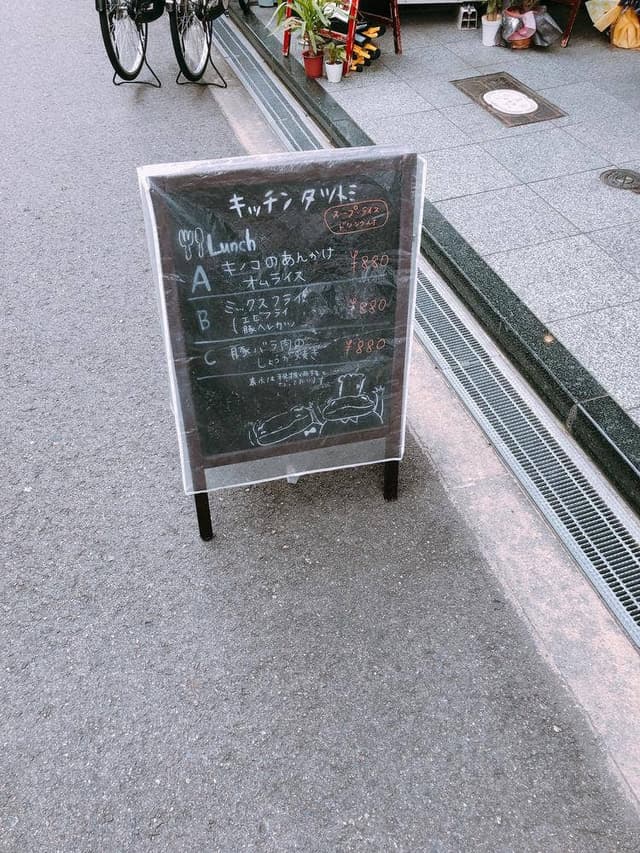 キッチン タツトミ
スープ・ライス
ドリンク付
Lunch
A キノコのあんかけ
オムライス ¥880
B ミックスフライ
(エビフライ
豚ヘレカツ ¥880
C 豚バラ肉の
しょうが焼き ¥880
表示は税抜価格と
なっております